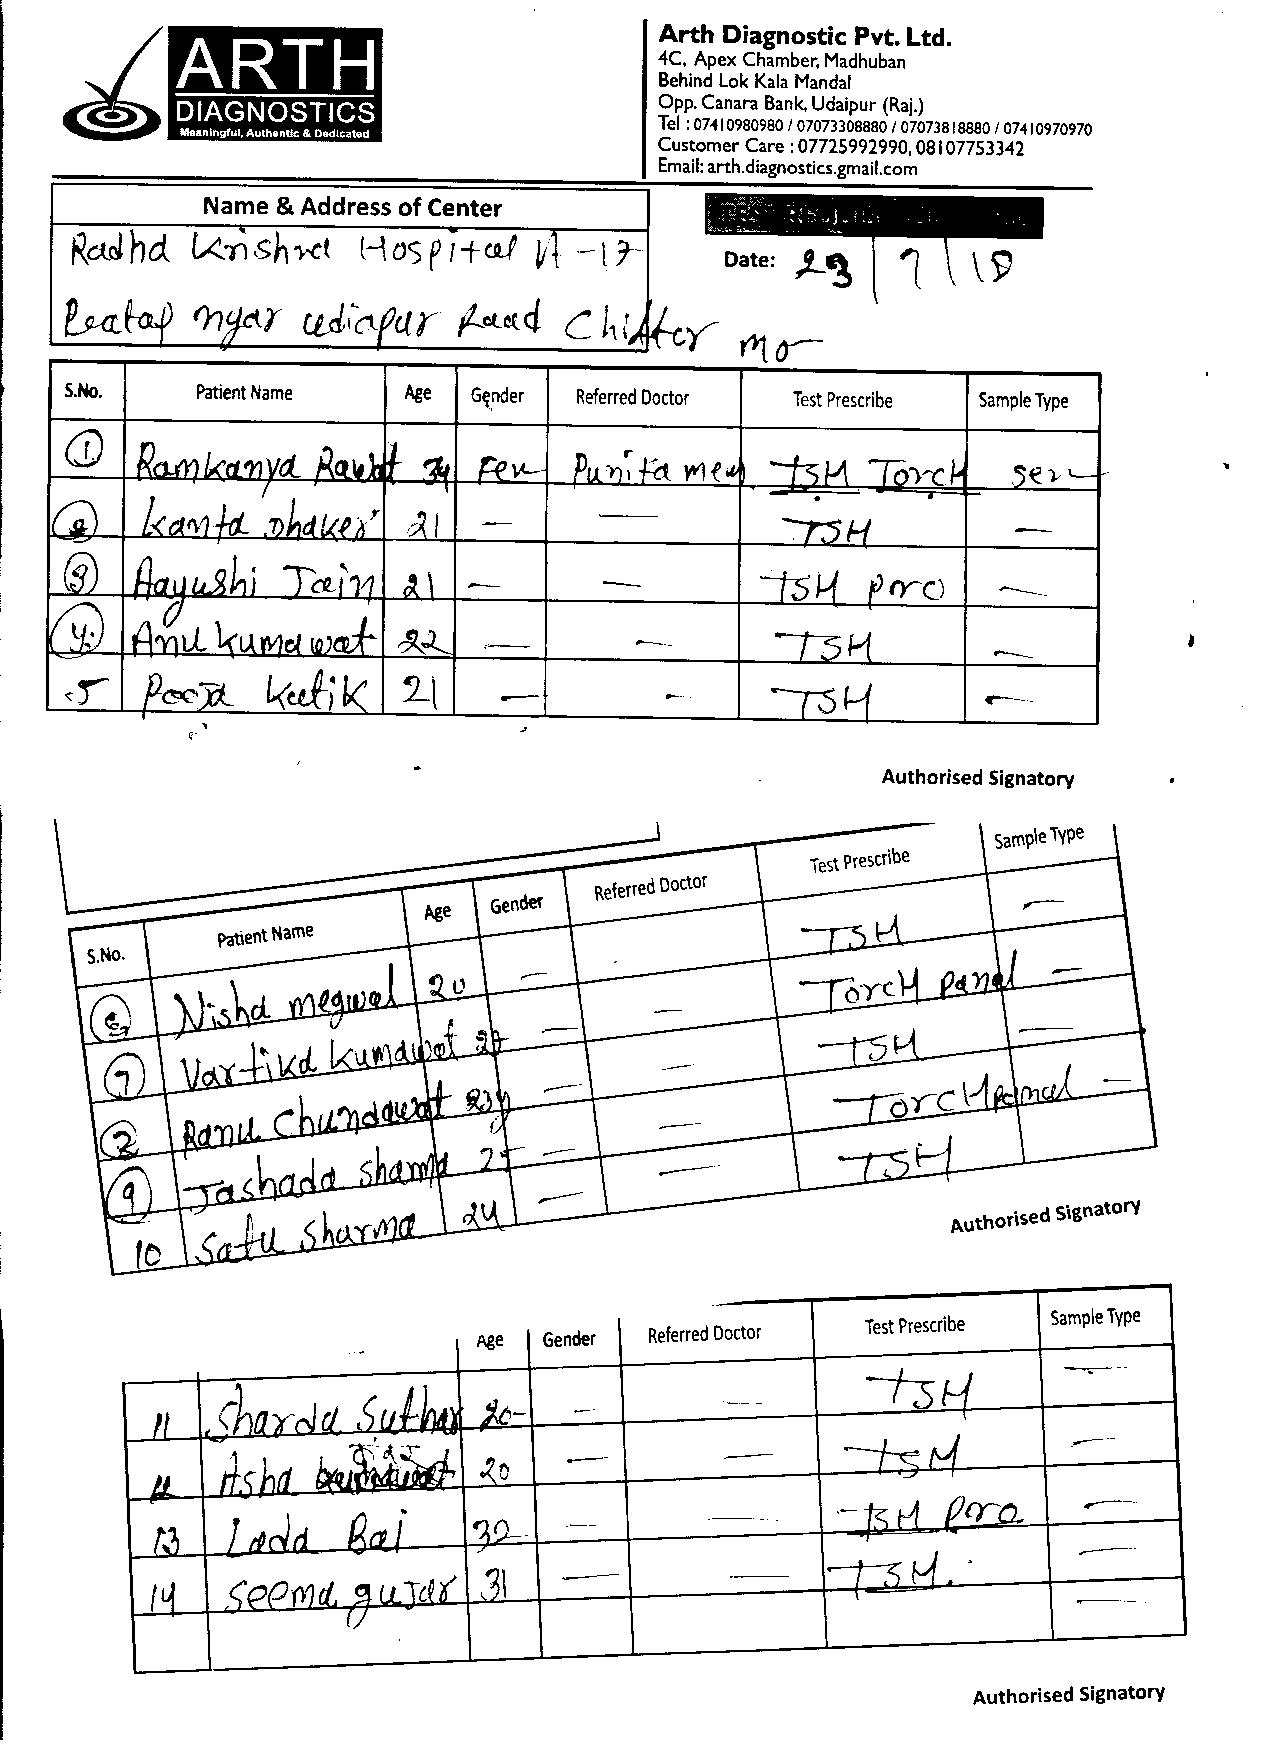 ARTH
DIAGNOSTICS
Meaningful, Authentic & Dedicated
Arth Diagnostic Pvt. Ltd.
4C, Apex Chamber, Madhuban
Behind Lok Kala Mandal
Opp. Canara Bank, Udaipur (Raj.)
Tel : 07410980980 / 07073308880 / 07073818880 / 07410970970
Customer Care : 07725992990, 08107753342
Email: arth.diagnostics.gmail.com
Name & Address of Center
Radha Krishna Hospital -17
Date: 23/7/18
Pratap ngar udiapur Road Chittor
S.No. Patient Name Age Gender Referred Doctor Test Prescribe Sample Type
1 Ramkanya Rawat 34 Fem Punita mem TSH TORCH Seru
2 Kanta Dhaker 21 — — TSH —
3 Aayushi Jain 21 — — TSH pro —
4. Anu kumawat 22 — — TSH —
5 Pooja Kutik 21 — — TSH —
Authorised Signatory
S.No. Patient Name Age Gender Referred Doctor Test Prescribe Sample Type
Nisha megwal 20 — — TSH —
7 Vartika kumawat — — TORCH panel —
Ranu Chundawat — — TSH —
9 Jashada Sharma 25 — — TORCH panel —
10 Satu Sharma 24 — — TSH
Authorised Signatory
Age Gender Referred Doctor Test Prescribe Sample Type
11 Sharda Suthar 20 — — TSH —
12 Asha 20 — — TSH —
13 Lada Bai 30 — — TSH pro —
14 Seema gujar 31 — — TSH. —
—
Authorised Signatory